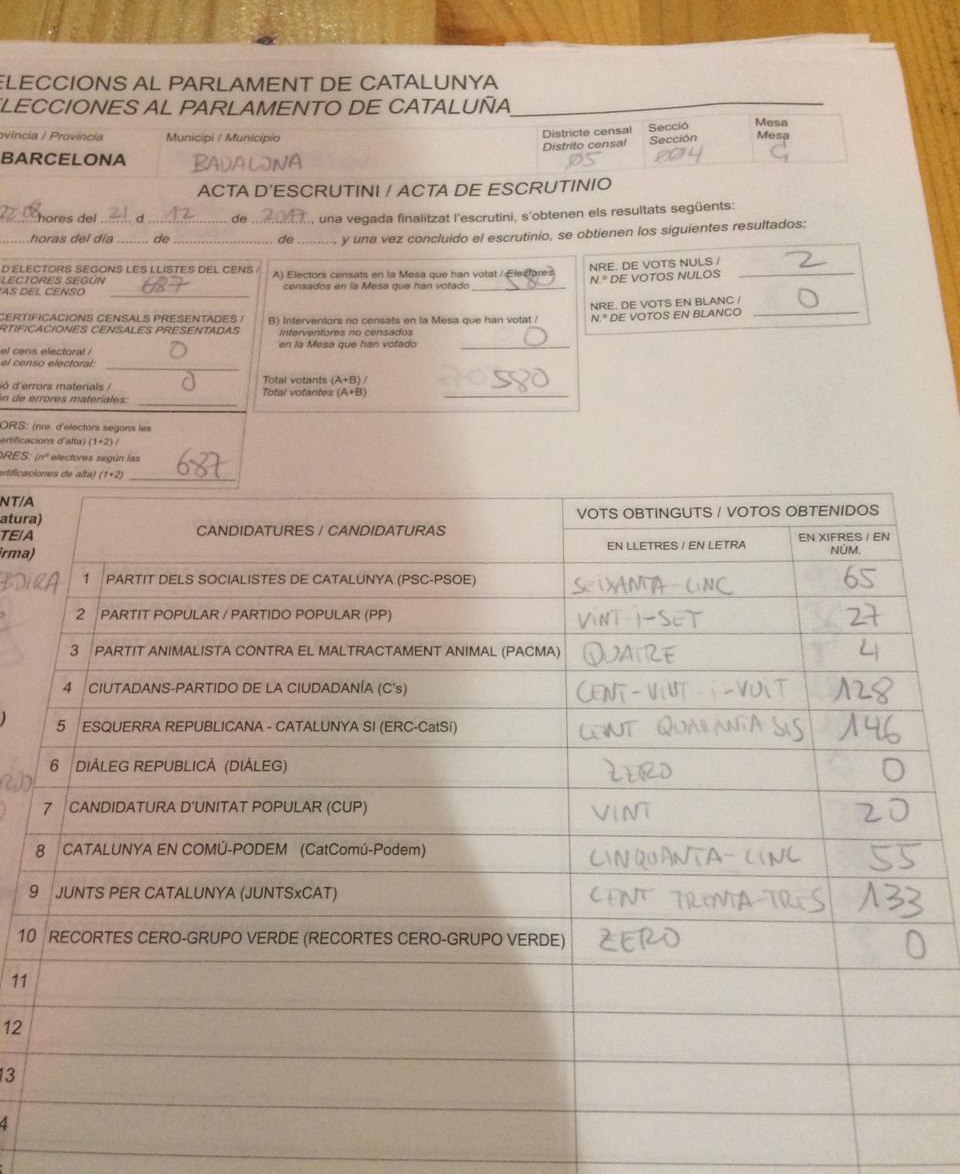 ELECCIONS AL PARLAMENT DE CATALUNYA
ELECCIONES AL PARLAMENTO DE CATALUÑA
ovíncia / Provincia
BARCELONA
Municipi / Municipio
BADALONA
Districte censal
Distrito censal
05
Secció
Sección
004
Mesa
Mesa
ACTA D'ESCRUTINI / ACTA DE ESCRUTINIO
hores del 21 d 12 de 2017, una vegada finalitzat l'escrutini, s'obtenen els resultats següents:
horas del día ........ de ........................ de ........, y una vez concluido el escrutinio, se obtienen los siguientes resultados:
D'ELECTORS SEGONS LES LLISTES DEL CENS /
LECTORES SEGÚN
TAS DEL CENSO 687
CERTIFICACIONS CENSALS PRESENTADES /
RTIFICACIONES CENSALES PRESENTADAS
el cens electoral /
el censo electoral: 0
ió d'errors materials /
ón de errores materiales: 0
ORS: (nre. d'electors segons les
ertificacions d'alta) (1+2) /
ORES: (nº electores según las
ertificaciones de alta) (1+2) 687
A) Electors censats en la Mesa que han votat / Electores
censados en la Mesa que han votado 580
B) Interventors no censats en la Mesa que han votat /
Interventores no censados
en la Mesa que han votado 0
Total votants (A+B) /
Total votantes (A+B) 580
NRE. DE VOTS NULS /
N.º DE VOTOS NULOS 2
NRE. DE VOTS EN BLANC /
N.º DE VOTOS EN BLANCO 0
NT/A
atura)
TE/A
irma)
CANDIDATURES / CANDIDATURAS
VOTS OBTINGUTS / VOTOS OBTENIDOS
EN LLETRES / EN LETRA
EN XIFRES / EN
NÚM.
1 PARTIT DELS SOCIALISTES DE CATALUNYA (PSC-PSOE) SEIXANTA-CINC 65
2 PARTIT POPULAR / PARTIDO POPULAR (PP) VINT-I-SET 27
3 PARTIT ANIMALISTA CONTRA EL MALTRACTAMENT ANIMAL (PACMA) QUATRE 4
4 CIUTADANS-PARTIDO DE LA CIUDADANÍA (C's) CENT-VINT-I-VUIT 128
5 ESQUERRA REPUBLICANA - CATALUNYA SI (ERC-CatSí) CENT QUARANTA SIS 146
6 DIÀLEG REPUBLICÀ (DIÀLEG) ZERO 0
7 CANDIDATURA D'UNITAT POPULAR (CUP) VINT 20
8 CATALUNYA EN COMÚ-PODEM (CatComú-Podem) CINQUANTA-CINC 55
9 JUNTS PER CATALUNYA (JUNTSxCAT) CENT TRENTA-TRES 133
10 RECORTES CERO-GRUPO VERDE (RECORTES CERO-GRUPO VERDE) ZERO 0
11
12
13
4